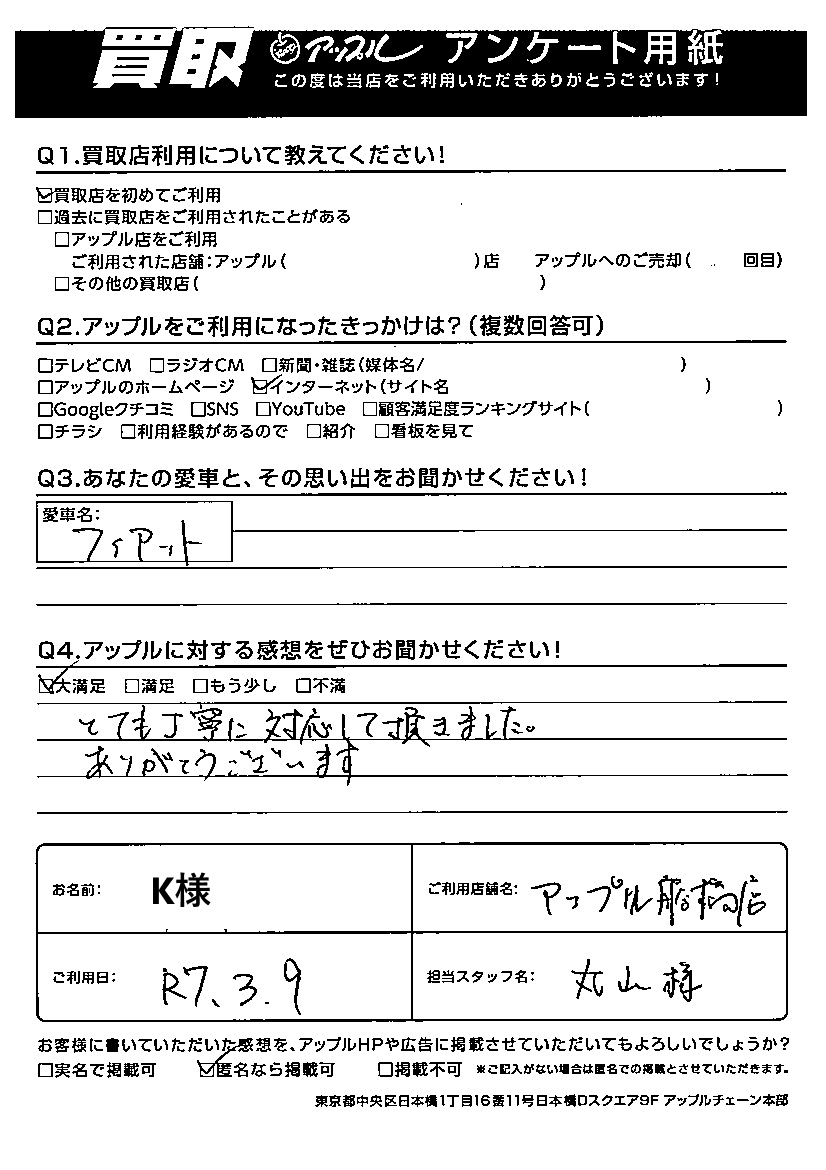 買取 アップル アンケート用紙
この度は当店をご利用いただきありがとうございます！
Q1.買取店利用について教えてください！
☑買取店を初めてご利用
□過去に買取店をご利用されたことがある
□アップル店をご利用
ご利用された店舗：アップル（ ）店 アップルへのご売却（ 回目）
□その他の買取店（ ）
Q2.アップルをご利用になったきっかけは？（複数回答可）
□テレビCM □ラジオCM □新聞・雑誌（媒体名/ ）
□アップルのホームページ ☑インターネット（サイト名 ）
□Googleクチコミ □SNS □YouTube □顧客満足度ランキングサイト（ ）
□チラシ □利用経験があるので □紹介 □看板を見て
Q3.あなたの愛車と、その思い出をお聞かせください！
愛車名：
フィアット
Q4.アップルに対する感想をぜひお聞かせください！
☑大満足 □満足 □もう少し □不満
とても丁寧に対応して頂きました。
ありがとうございます
お名前： K様 ご利用店舗名： アップル船橋店
ご利用日： R7.3.9 担当スタッフ名： 丸山様
お客様に書いていただいた感想を、アップルHPや広告に掲載させていただいてもよろしいでしょうか？
□実名で掲載可 ☑匿名なら掲載可 □掲載不可 ※ご記入がない場合は匿名での掲載とさせていただきます。
東京都中央区日本橋1丁目16番11号日本橋Dスクエア9F アップルチェーン本部